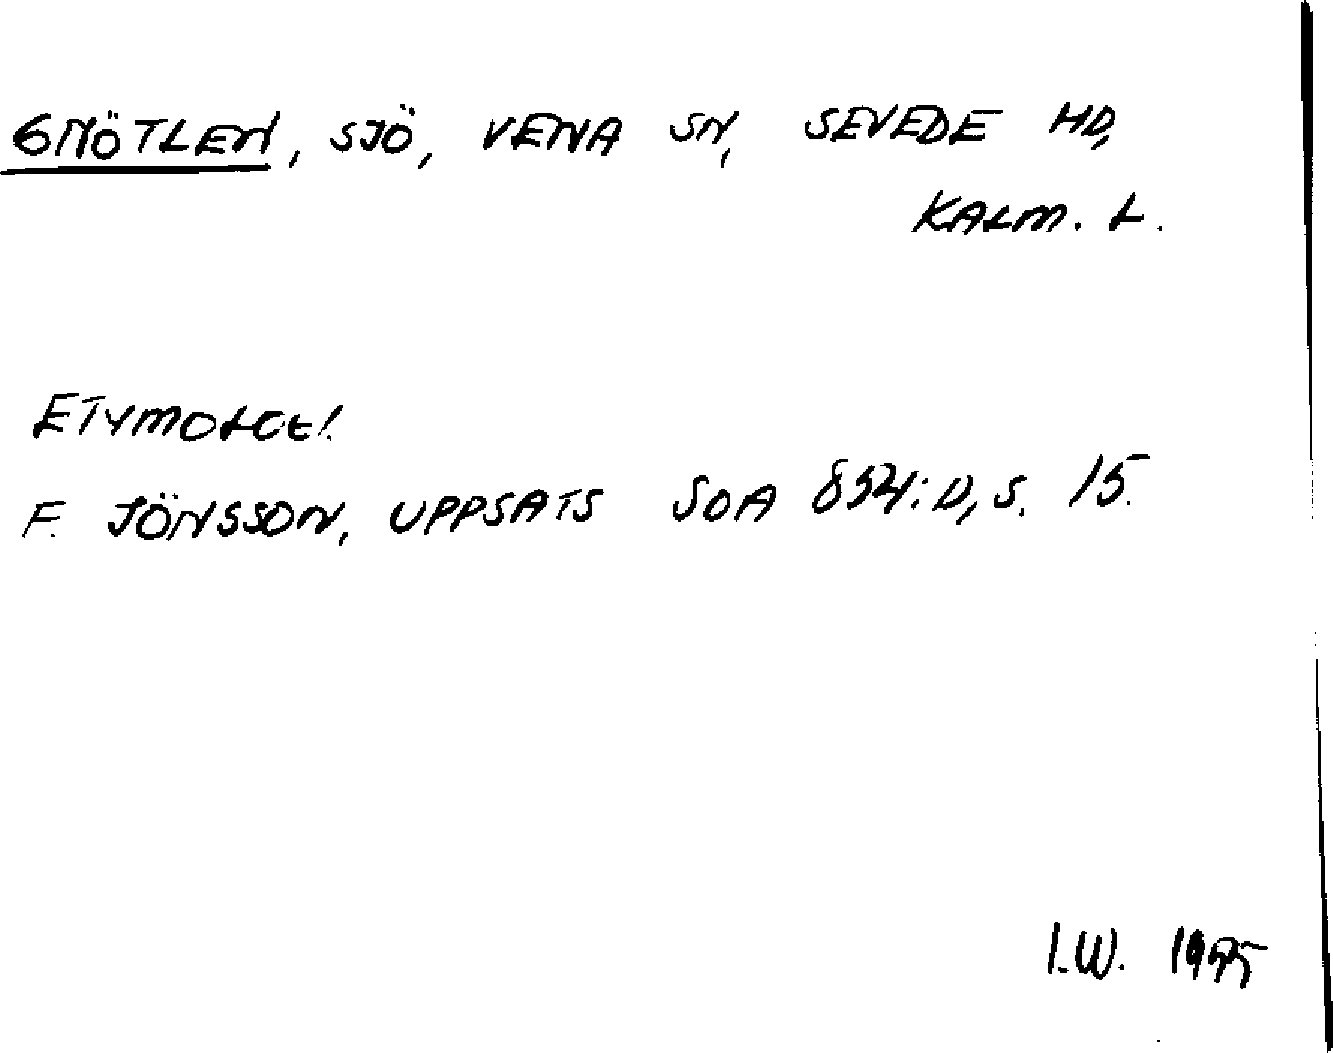 GNÖTLEN, SJÖ, VENA SN, SEVEDE HD,
KALM. L.
ETYMOLOGI.
F. JÖNSSON, UPPSATS SOA 854:D, S. 15.
I.W. 1975